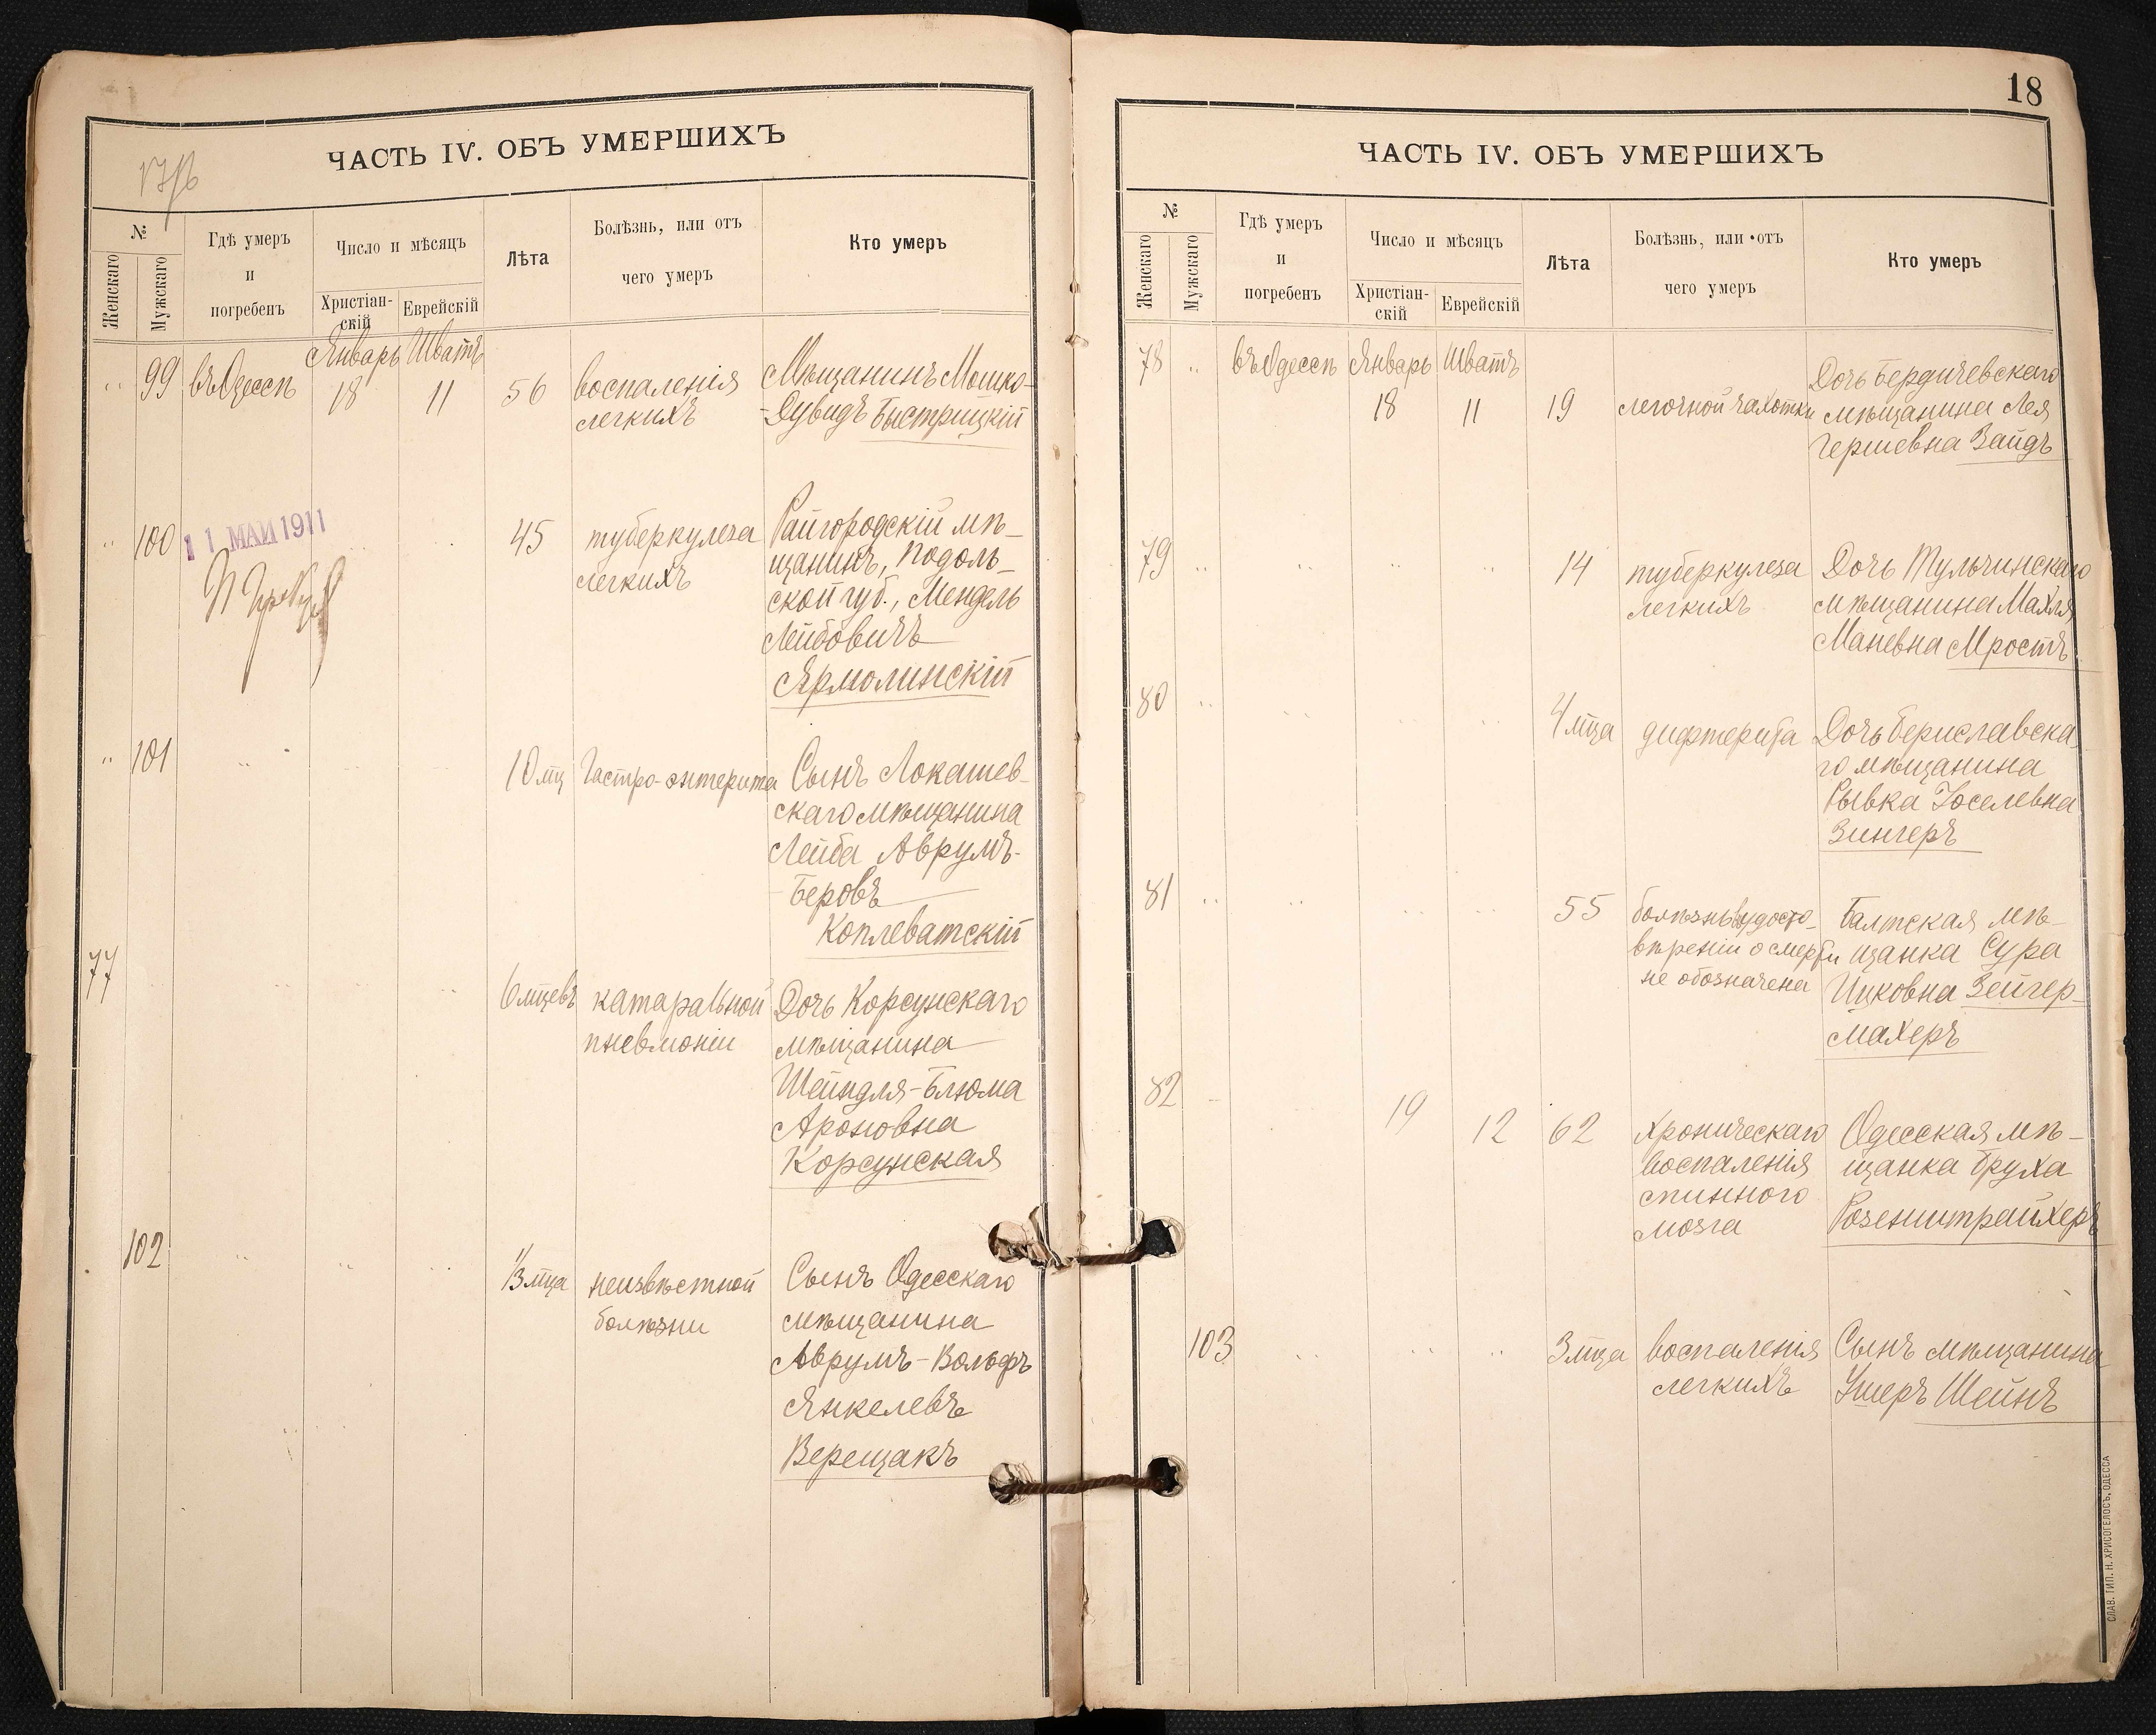 ЧАСТЬ IV. ОБЪ УМЕРШИХЪ
№
Женскаго
Мужскаго
Гдѣ умеръ
и
погребенъ
Число и мѣсяцъ
Христіан-
скій
Еврейскій
Лѣта
Болѣзнь, или отъ
чего умеръ
Кто умеръ
Январь Шватъ
" 99 въ Одессѣ 18 11 56 воспаленія
легкихъ
Мѣщанинъ Мошко-
-Дувидъ Быстрицкій
" 100
11 МАИ 1911
45 туберкулеза
легкихъ
Райгородскій мѣ-
щанинъ, Подоль-
ской губ., Мендель
Лейбовичъ
Ярмолинскій
" 101 10 мц Гастро-энтерита
Сынъ Локашев-
скаго мѣщанина
Лейба Аврумъ-
Беровъ
Коплеватскій
77 6 мцевъ катаральной
пневмоніи
Дочь Корсунскаго
мѣщанина
Шейндля-Блюма
Ароновна
Корсунская
102 1/3 мца неизвѣстной
болѣзни
Сынъ Одесскаго
мѣщанина
Аврумъ-Вольфъ
Янкелевъ
Верещакъ
18
ЧАСТЬ IV. ОБЪ УМЕРШИХЪ
№
Женскаго
Мужскаго
Гдѣ умеръ
и
погребенъ
Число и мѣсяцъ
Христіан-
скій
Еврейскій
Лѣта
Болѣзнь, или отъ
чего умеръ
Кто умеръ
78 " въ Одессѣ Январь Шватъ
18 11 19 легочной чахотки
Дочь Бердичевскаго
мѣщанина Лея
Гершевна Зайдъ
79 " " " " 14 туберкулеза
легкихъ
Дочь Тульчинскаго
мѣщанина Махля
Маневна Мростъ
80 " " " " 4 мца дифтерита
Дочь Бериславска
го мѣщанина
Рывка Іоселевна
Зингеръ
81 " " " " 55 болѣзнь въ удосто-
вѣреніи о смерти
не обозначена
Балтская мѣ-
щанка Сура
Ицковна Зейгер-
махеръ
82 19 12 62 хроническаго
воспаленія
спинного
мозга
Одесская мѣ-
щанка Бруха
Розенштрайхеръ
103 " " " 3 мца воспаленія
легкихъ
Сынъ мѣщанина
Ушеръ Шейнъ
СЛАВ. ТИП. Н. ХРИСОГЕЛОСЪ, ОДЕССА